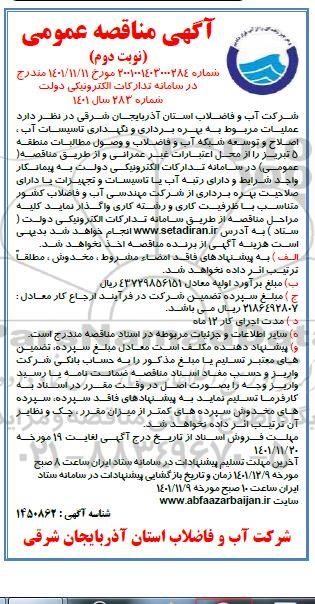 آگهی مناقصه عمومی
(نوبت دوم)
شماره ۲۰۰۱۰۰۱۴۰۳۰۰۰۲۸۴ مورخ ۱۴۰۱/۱۱/۱۱ مندرج
در سامانه تدارکات الکترونیکی دولت
شماره ۲۸۳ سال ۱۴۰۱
شرکت آب و فاضلاب استان آذربایجان شرقی در نظر دارد
عملیات مربوط به بهره برداری و نگهداری تاسیسات آب ،
اصلاح و توسعه شبکه آب و فاضلاب و وصول مطالبات منطقه
۵ تبریز را از محل اعتبارات غیر عمرانی و از طریق مناقصه(
عمومی) در سامانه تدارکات الکترونیکی دولت به پیمانکار
واجد شرایط و دارای رتبه آب یا تاسیسات و تجهیزات یا دارای
صلاحیت بهره برداری از شرکت مهندسی آب و فاضلاب کشور
متناسب با ظرفیت کاری و رشته کاری واگذار نماید. کلیه
مراحل مناقصه از طریق سامانه تدارکات الکترونیکی دولت (
ستاد ) به آدرس www.setadiran.ir انجام خواهد شد بدیهی
است هزینه آگهی از برنده مناقصه اخذ خواهد شد.
الف ) به پیشنهادهای فاقد امضاء مشروط ، مخدوش ، مطلقاً
ترتیب اثر داده نخواهد شد.
ب) مبلغ برآورد اولیه معادل ۴۳۷۲۹۸۵۶۱۵۱ ریال
ج ) مبلغ سپرده تضمین شرکت در فرآیند ارجاع کار معادل :
۲۱۸۶۴۹۲۸۰۷ ریال می باشد.
د ) مدت اجرای کار ۱۲ ماه
ه) سایر اطلاعات و جزئیات مربوطه در اسناد مناقصه مندرج است.
و) پیشنهاد دهنده مکلف است معادل مبلغ سپرده، تضمین
های معتبر تسلیم یا مبلغ مذکور را به حساب بانکی شرکت
واریز و حسب مفاد اسناد مناقصه ضمانت نامه یا رسید
واریز وجه را بصورت اصل در وقت مقرر در اسناد به
کارفرما تسلیم نماید به پیشنهادهای فاقد سپرده، سپرده
های مخدوش سپرده های کمتر از میزان مقرر ، چک و نظایر
آن ترتیب اثر داده نخواهد شد.
مهلت فروش اسناد از تاریخ درج آگهی لغایت ۱۹ مورخه
۱۴۰۱/۱۱/۲۰
آخرین مهلت تسلیم پیشنهادات در سامانه ستاد ایران ساعت ۸ صبح
مورخه ۱۴۰۱/۱۲/۹ زمان و تاریخ بازگشایی پیشنهادات در سامانه ستاد
ایران ساعت ۱۰ صبح مورخه ۱۴۰۱/۱۱/۹
سایت www.abfaazarbaijan.ir
شناسه آگهی : ۱۴۵۰۸۶۲
شرکت آب و فاضلاب استان آذربایجان شرقی